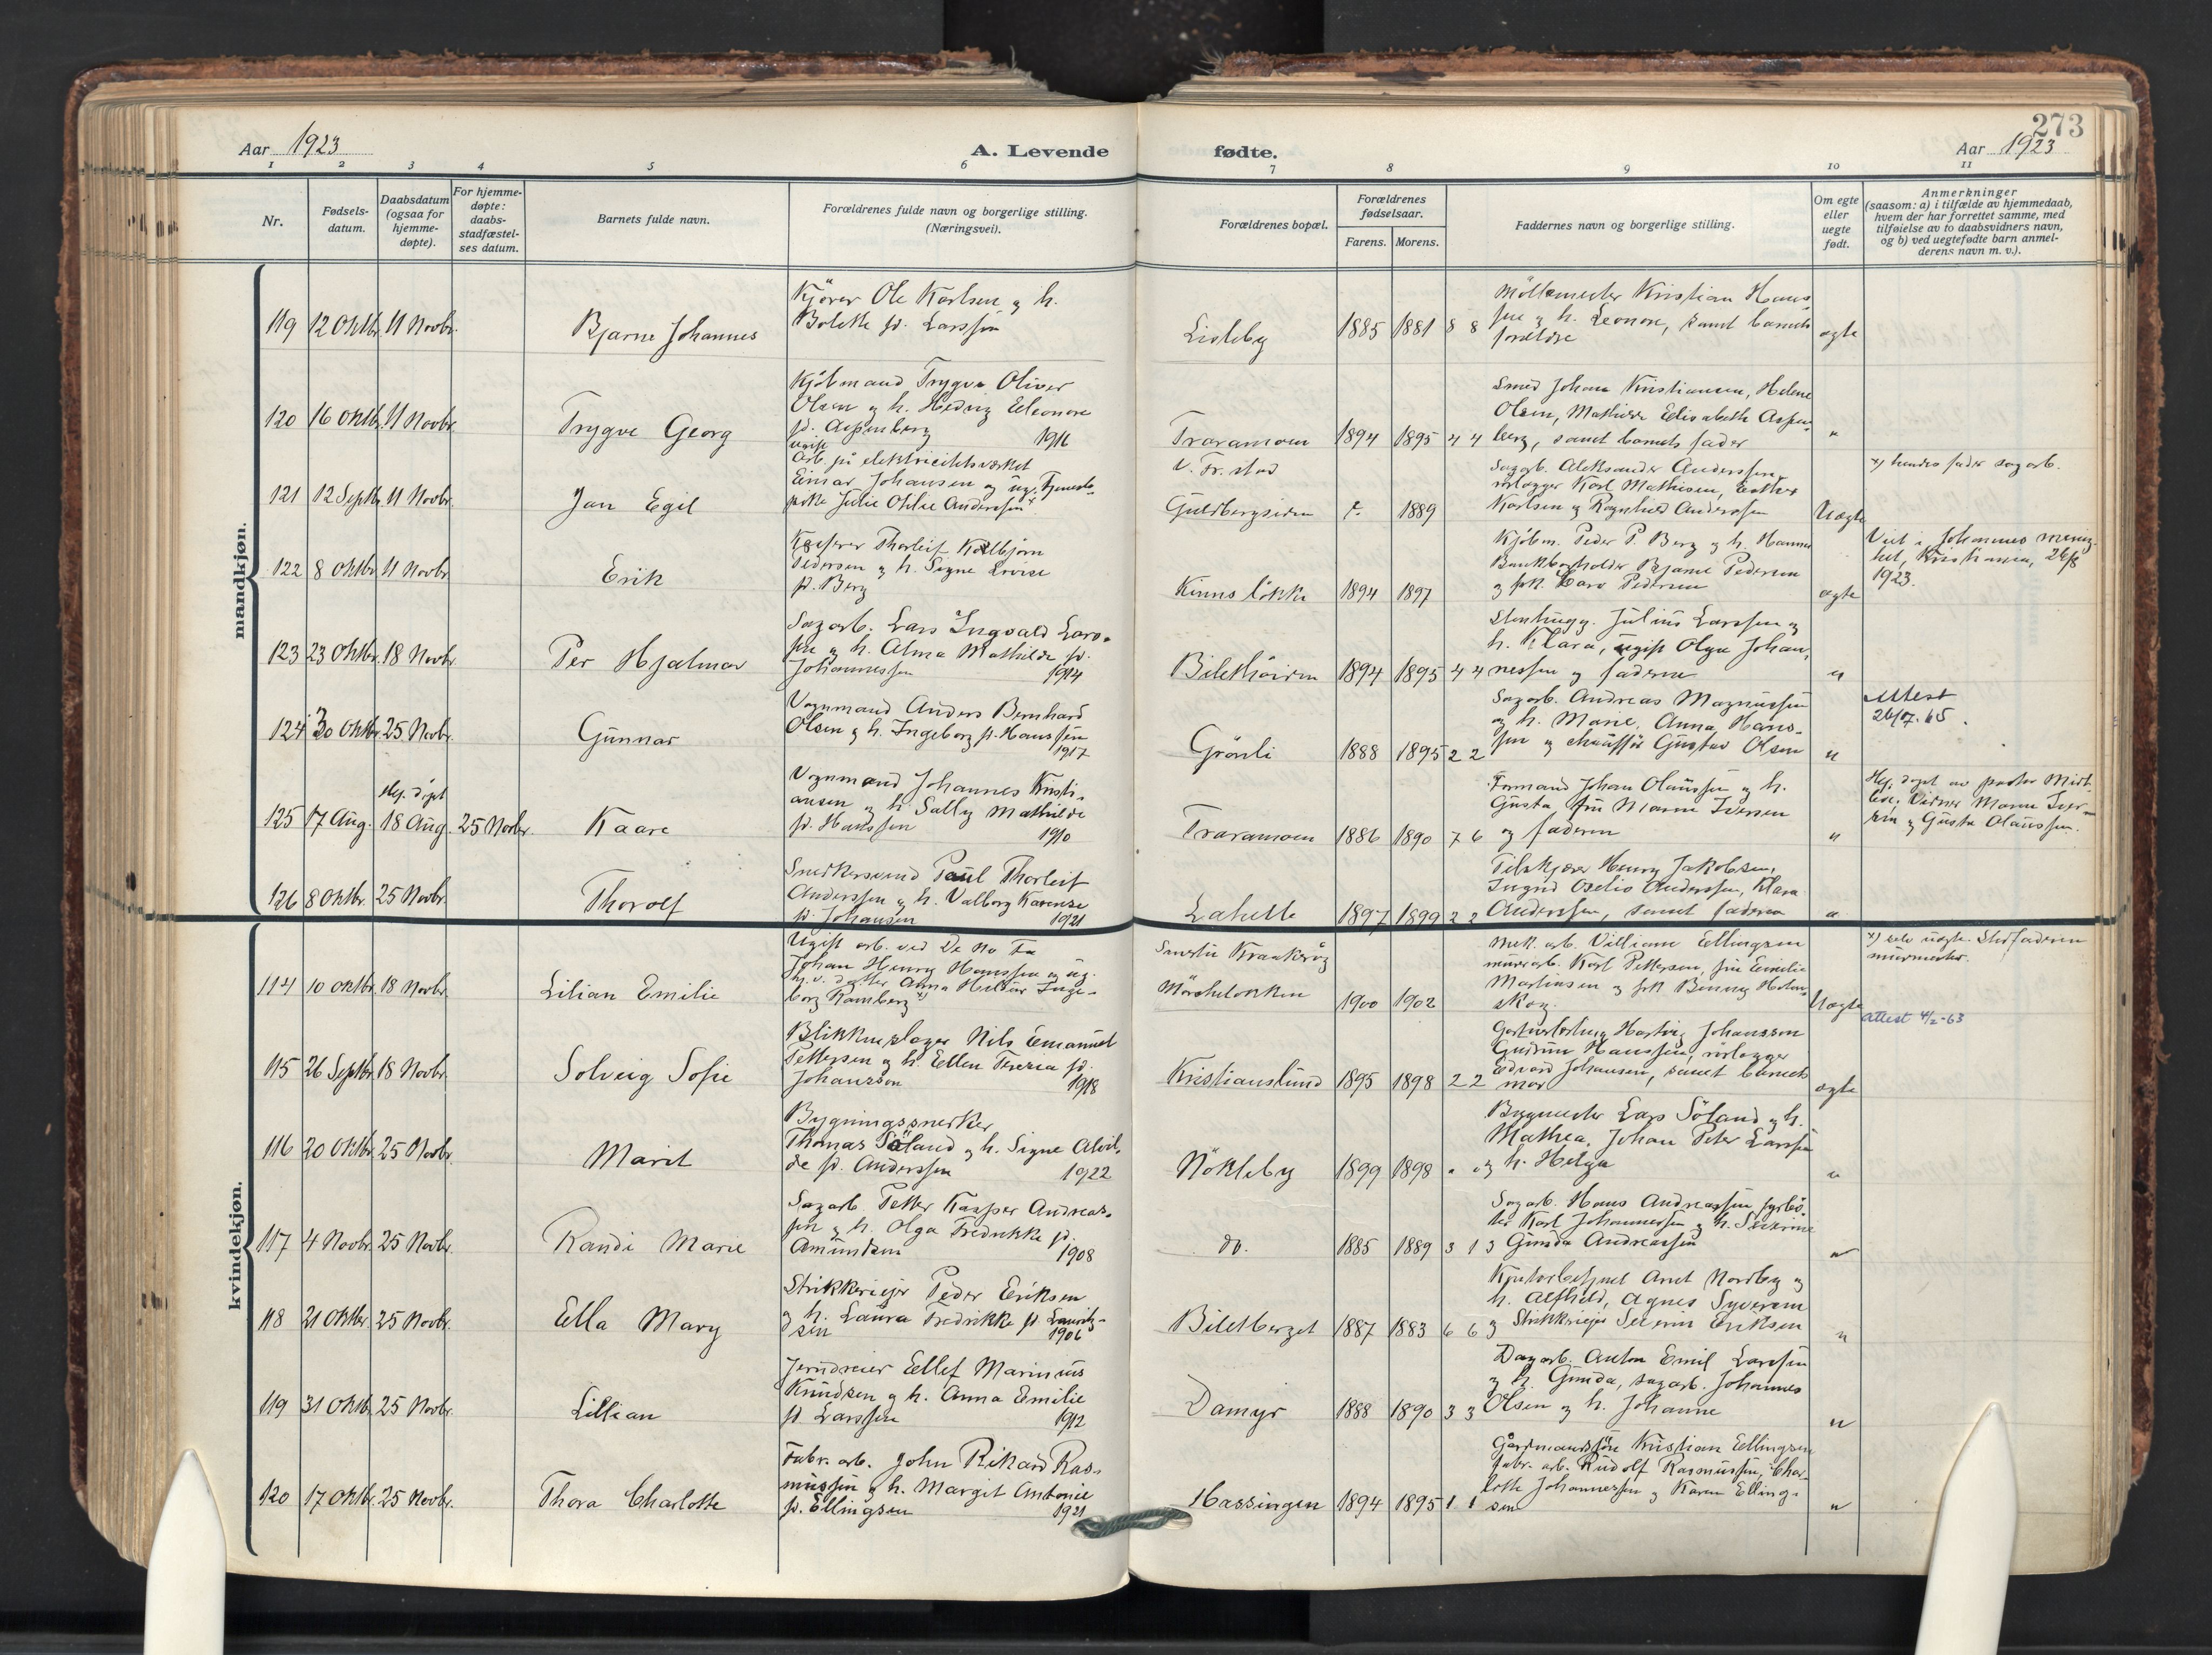 273
Aar 1923
A. Levende fødte.
Aar 1923
1 2 3 4 5 6 7 8 9 10 11
Nr.
Fødsels-
datum.
Daabsdatum
(ogsaa for
hjemme-
døpte).
For hjemme-
døpte:
daabs-
stadfæstel-
ses datum.
Barnets fulde navn.
Forældrenes fulde navn og borgerlige stilling.
(Næringsvei).
Forældrenes bopæl.
Forældrenes
fødselsaar.
Farens. Morens.
Faddernes navn og borgerlige stilling.
Om egte
eller
uegte
født.
Anmerkninger
(saasom: a) i tilfælde av hjemmedaab,
hvem der har forrettet samme, med
tilføielse av to daabsvidners navn,
og b) ved uegtefødte barn anmel-
derens navn m. v.).
mandkjøn.
119 12 Oktbr. 11 Novbr. Bjarne Johannes
Kjører Ole Karlsen og h.
Bolette fd. Larssen
Lisleby 1885 1881 8 8
Møllemester Kristian Hans
sen og h. Leonore, samt barnets
forældre
ægte
120 16 Oktbr. 11 Novbr. Trygve Georg
Kjøbmand Trygve Oliver
Olsen og h. Hedvig Eleonore
fd. Aspenberg 1916
Traramoen 1894 1895 4 4
Smed Johan Kristiansen, Helene
Olsen, Mathilde Elisabeth Aspen-
berg, samt barnets fader
"
121 12 Septbr. 11 Novbr. Jan Egil
ugift
Arb. på elektricitetsværket
Einar Johansen og ug. Tjeneste-
pike Julie Othlie Anderssen x
v. Fr.stad
Guldbergsiden 1889
Sagarb. Aleksander Anderssen,
rørlægger Karl Mathisen, Esther
Karlsen og Ragnhild Anderssen
Uægte
x) hendes fader sagarb.
122 8 Oktbr. 11 Novbr. Erik
Kasserer Thorleif Kolbjørn
Pedersen og h. Signe Lovise
fd. Berg
Kinns løkke 1894 1897
Kjøbm. Peder P. Berg og h. Hanna
Bankbokholder Bjarne Pedersen
og frk. Cara Pedersen
ægte
Viet i Johannes menig-
het, Kristiania, 26/8
1923.
123 23 Oktbr. 18 Novbr. Per Hjalmar
Sagarb. Lars Ingvald Lars-
sen og h. Alma Mathilde fd.
Johannessen 1914
Biletkøiden 1894 1895 4 4
Stenhugg. Julius Larssen og
h. Klara, ugift Olga Johan-
nessen og faderen
"
124 30 Oktbr. 25 Novbr. Gunnar
Vognmand Anders Bernhard
Olsen og h. Ingeborg fd. Hanssen
1917
Grønli 1888 1895 2 2
Sagarb. Andreas Magnussen
og h. Marie, Anna Hans-
sen og chauffør Gustav Olsen
"
Attest
26/7.65.
125 17 Aug.
Hj. døpt
18 Aug. 25 Novbr. Kaare
Vognmand Johannes Kristi-
ansen og h. Sally Mathilde
fd. Hanssen 1910
Traramoen 1886 1890 7 6
Formand Johan Olaussen og h.
Gusta fru Marna Iversen
og faderen
"
Hj. døpt av pastor Midt-
lie. Vidner Marna Iver-
sen og Gusta Olaussen.
126 8 Oktbr. 25 Novbr. Thorolf
Snedkersvend Paul Thorleif
Anderssen og h. Valborg Karense
fd. Johansen 1921
Lahelle 1897 1899 2 2
Filskjærer Henry Jakobsen,
Ingrid Oselie Anderssen, Klara
Anderssen, samt faderen
"
kvindekjøn.
114 10 Oktbr. 18 Novbr. Lilian Emilie
Ugift arb. ved De No Fa
Johan Henry Hanssen og ug.
hj.v. datter Anna Hilda Inge-
borg Ramberg x)
Smertu Kraakerøy
Mørcheløkken 1900 1902
Mek. arb. Villiam Ellingsen
murerarb. Karl Pettersen, fru Emilie
Martinsen og frk Benny Holm-
skog.
Uægte
x) selv uægte. Stiffaderen
murmester.
attest 4/2-63
115 26 Septbr. 18 Novbr. Solveig Sofie
Blikkenslager Nils Emanuel
Pettersen og h. Ellen Teresia fd.
Johansson 1918
Kristianslund 1895 1898 2 2
Hartvig Johansson
Gudrun Hanssen, rørlægger
Edvard Johansen, samt barnets
mor
ægte
116 20 Oktbr. 25 Novbr. Marit
Bygningssnekker
Thomas Søland og h. Signe Alvil-
de fd. Anderssen 1922
Nøkleby 1899 1898 " "
Bygmester Lars Søland og h.
Mathea, Johan Peter Larssen
og h. Helga
"
117 4 Novbr. 25 Novbr. Randi Marie
Sagarb Petter Kasper Andreas-
sen og h. Olga Fredrikke fd.
Amundsen 1908
do. 1885 1889 3 1 3
Sagarb. Hans Andreassen fyrbø-
ter Karl Johannessen og h. Severine
Gunda Andreassen
"
118 21 Oktbr. 25 Novbr. Ella Mary
Strikkerieier Peder Eriksen
og h. Laura Fredrikke fd. Lauritz-
sen 1906
Biletberget 1887 1883 6 6
Kontorbetjent Arnt Nordby og
h. Alfhild, Agnes Syversen
og Strikkerieier Severin Eriksen
"
119 31 Oktbr. 25 Novbr. Lillian
Jerndreier Ellef Marinius
Knudsen og h. Anna Emilie
fd. Larssen 1912
Damyr 1888 1890 3 3
Dagarb. Anton Emil Larssen
og h. Gunda, sagarb. Johannes
Olsen og h. Johanne
"
120 17 Oktbr. 25 Novbr. Thora Charlotte
Fabr. arb. John Rikard Ras-
mussen og h. Margit Antonie
fd. Ellingsen 1921
Hassingen 1894 1895 1 1
Gårdmandssøn Kristian Ellingsen
fabr. arb. Rudolf Rasmussen, Char-
lotte Johannessen og Karen Elling-
sen
"